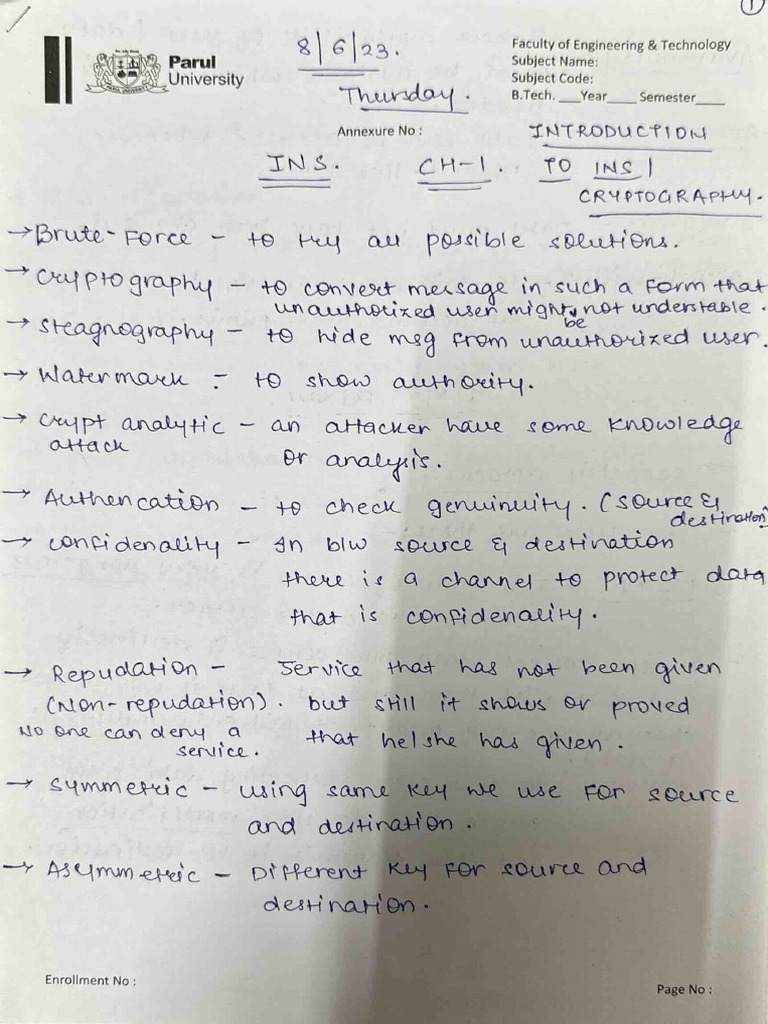 1
8/6/23.
Thursday.
Parul
University
PARUL UNIVERSITY
Faculty of Engineering & Technology
Subject Name:
Subject Code:
B.Tech. ___Year____ Semester____
Annexure No :
INS. CH-1. INTRODUCTION
TO INS/
CRYPTOGRAPHY.
→ Brute-Force - to try all possible solutions.
→ Cryptography - to convert message in such a form that
unauthorized user might be not understable.
→ Steagnography - to hide msg from unauthorized user.
→ Watermark - to show authority.
→ Crypt analytic - an attacker have some knowledge
attack or analysis.
→ Authencation - to check genuinuity. (source &
destination)
→ Confidenality - In b/w source & destination
there is a channel to protect data
that is confidenality.
→ Repudation - Service that has not been given
(Non-repudation). but still it shows or proved
No one can deny a that he/she has given.
service.
→ Symmetric - using same key we use for source
and destination.
→ Asymmetric - Different key for source and
destination.
Enrollment No :
Page No :